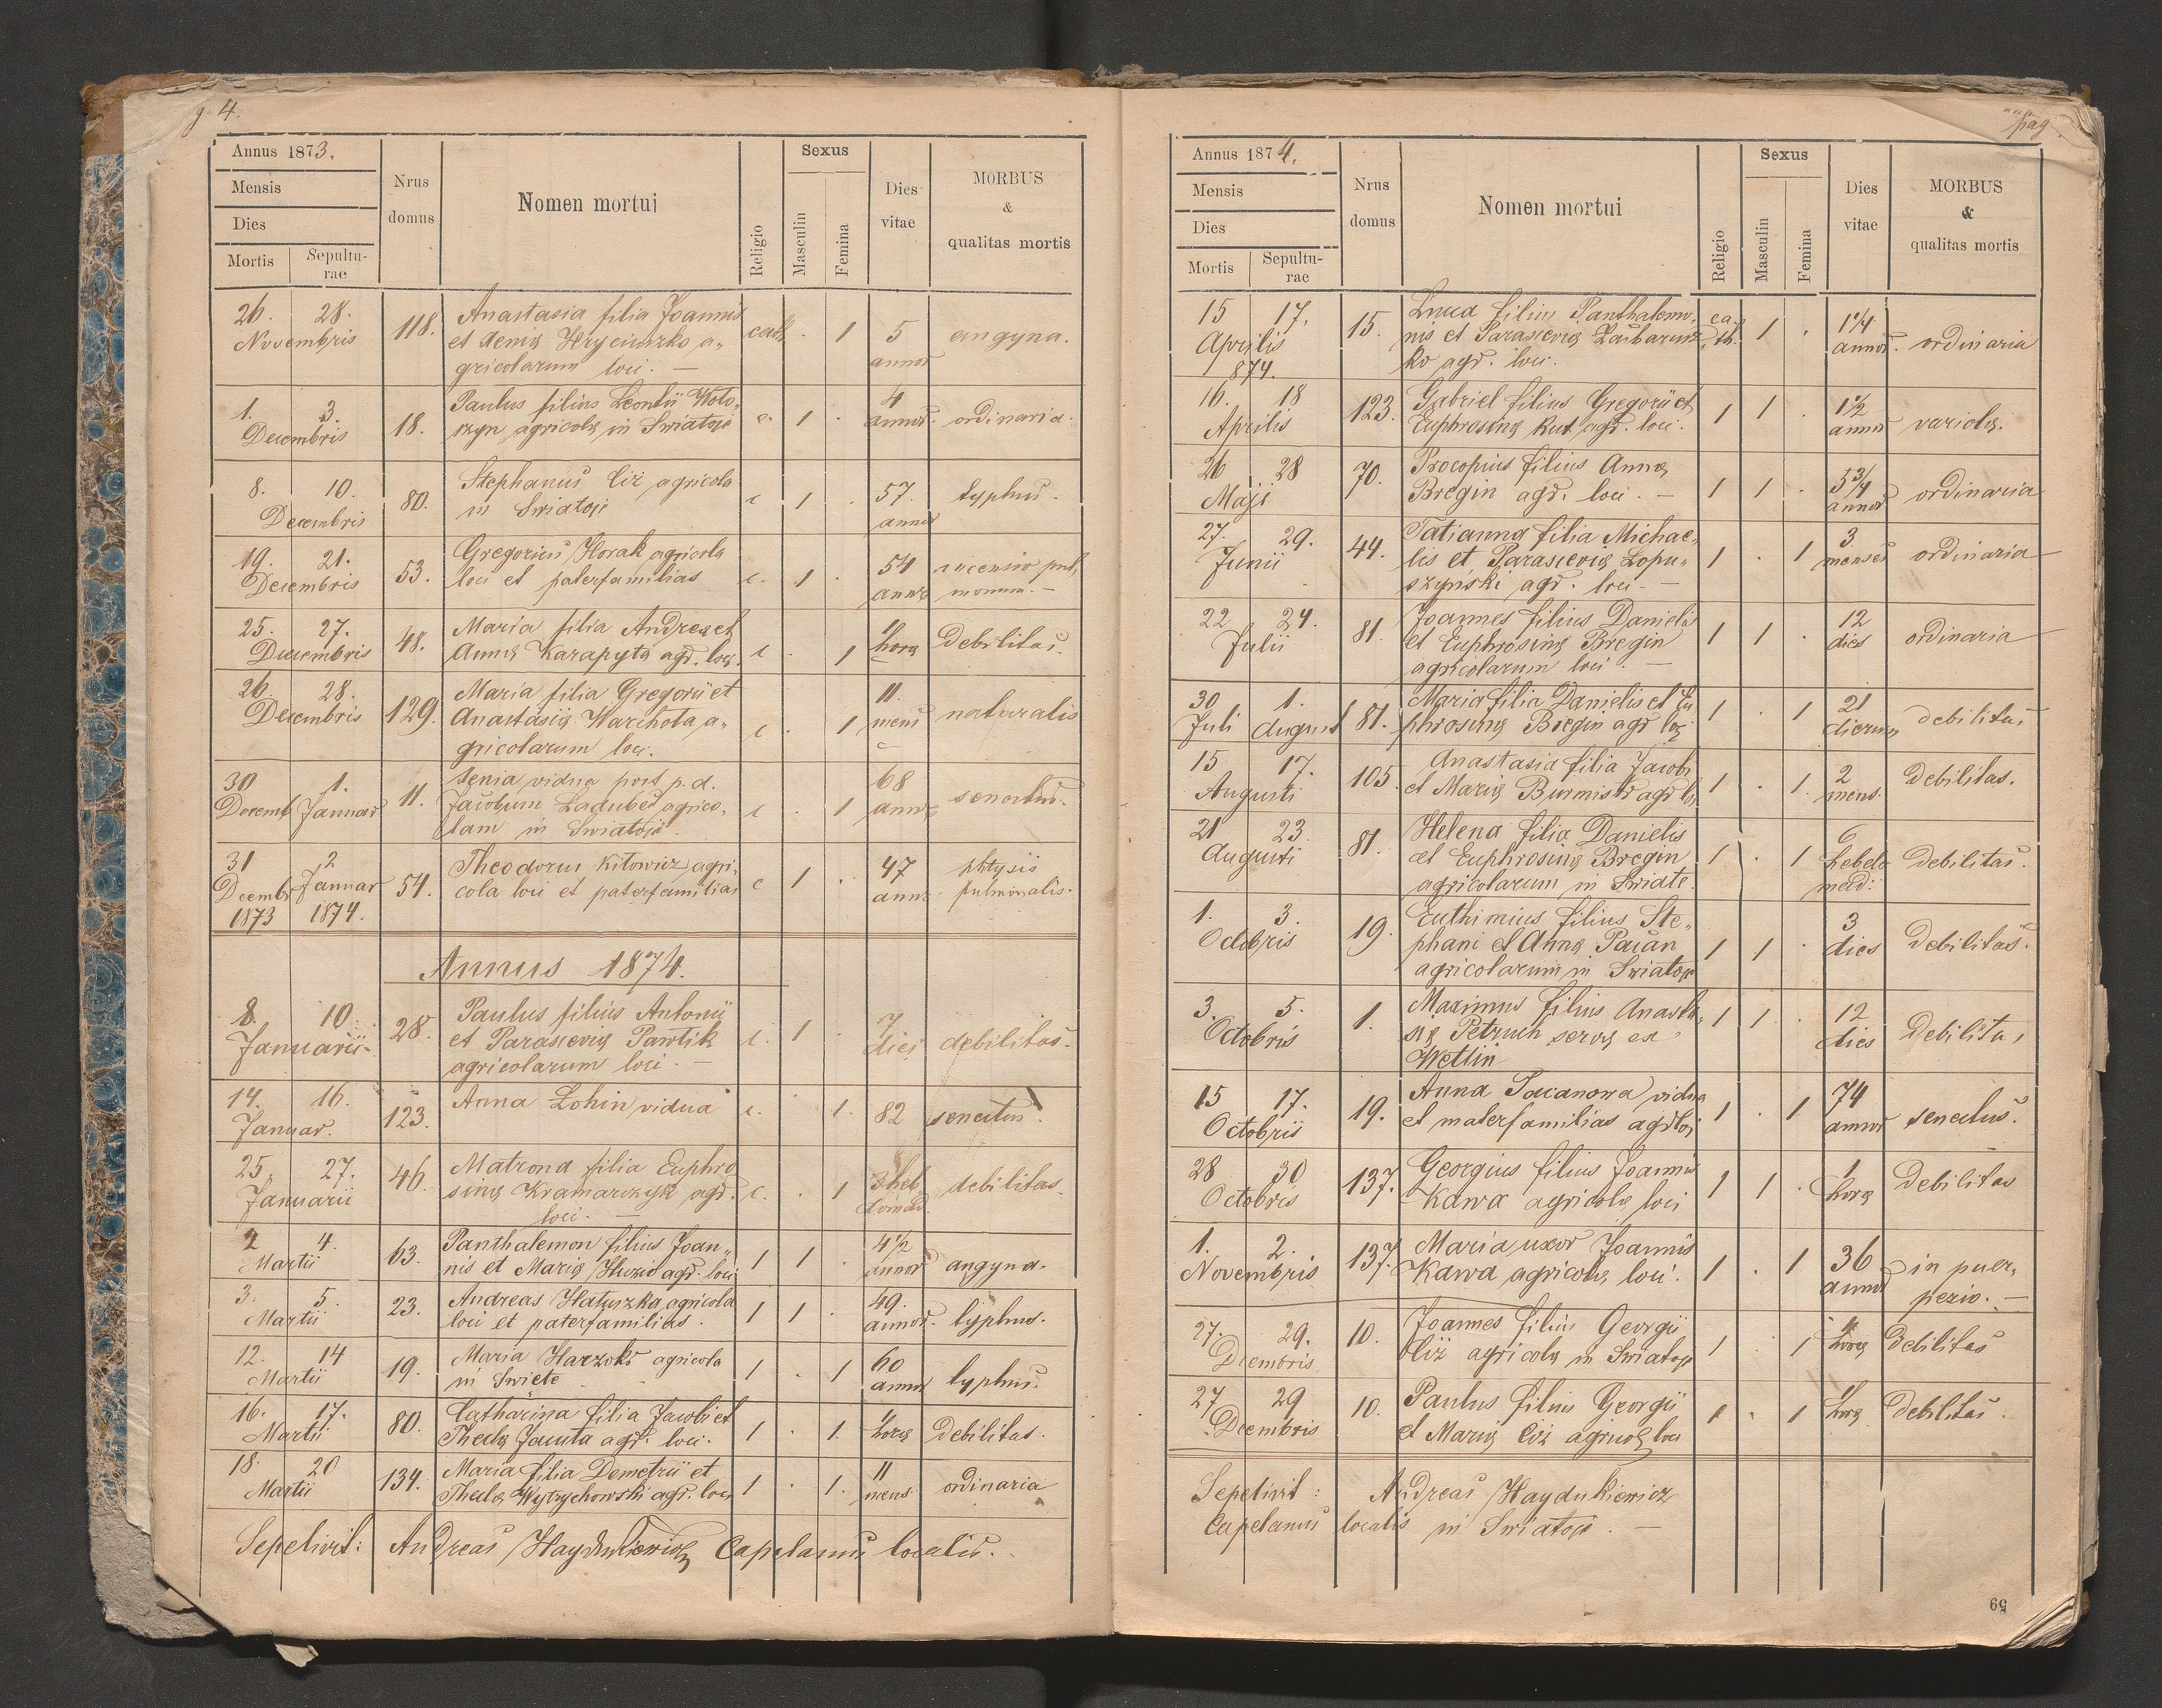 g. 4.
Annus 1873.
Mensis
Dies
Mortis
Sepultu-
rae
Nrus
domus
Nomen mortui
Religio
Sexus
Masculin
Femina
Dies
vitae
MORBUS
&
qualitas mortis
26. 28. 118. Anastasia filia Joannis cath. . 1 5 angyna.
Novembris et Xenię Hryciuszko a„ annor
gricolarum loci. —
1. 3. 18. Paulus filius Leontii Woło„ c. 1 . 4 ordinaria.
Decembris szyn agricolę in Swiatoje annor.
8. 10. 80. Stephanus Ciż agricola c 1 . 57. typhus.
Decembris in Swiatoje annor
19. 21. 53. Gregorius Horak agricola c. 1 . 54 pul„
Decembris loci et paterfamilias annor monum. —
25. 27. 48. Maria filia Andreę et c . 1 1 Debilitas.
Decembris Annę Karapyta agr. loci. horę
26. 28. 129. Maria filia Gregorii et c . 1 11. naturalis
Decembris Anastasię Warchoła a„ mens
gricolarum loci.
30 1. 11. Xenia vidua post p. d. c . 1 68
Decemb. Januar Jacobum agrico„ annor
lam in Swiatoje.
31 2 54. Theodorus Kitowicz agri„ c 1 . 47 phtysis
Decembr Januar cola loci et paterfamilias annor pulmonalis.
1873 1874.
Annus 1874.
8. 10. 28. Paulus filius Antonii c. 1 . 7 debilitas.
Januarii et Parascevię Pawlik dies
agricolarum loci. —
14. 16. 123. Anna Łohin vidua c. . 1. 82 senectus.
Januar.
25. 27. 46. Matrona filia Euphro c. . 1 3 heb debilitas.
Januarii sinę Kramarczyk agr. domad.
loci. —
2 4. 63. Panthalemon filius Joan„ 1 1 . 4 1/2 angyna.
Martii nis et Marię agr. loci annor
3. 5. 23. Andreas Hałuszka agricola 1 1 . 49. typhus.
Martii loci et paterfamilias. annor.
12. 14 19. Maria agricola 1 . 1 60 typhus.
Martii in Swiete annor
16. 17. 80. Catharina filia Jacobi et 1 . 1. 1 Debilitas.
Martii Theclę Jacuta agr. loci. horę
18. 20 134. Maria filia Demetrii et 1 . 1. 11 ordinaria
Martii Theclę Wytrychowski agr. loci mens.
Sepelivit: Andreas Haydukiewicz Capelanus localis.
pag.
Annus 1874.
Mensis
Dies
Mortis
Sepultu-
rae
Nrus
domus
Nomen mortui
Religio
Sexus
Masculin
Femina
Dies
vitae
MORBUS
&
qualitas mortis
15 17. 15. Lucas filius Panthalemo„ ca„ 1 . 1 1/4 ordinaria
Aprilis nis et Parascevię th. annor.
874. ko agr. loci.
16. 18 123. Gabriel filius Gregorii et 1 1 . 1 1/2 variolę.
Aprilis Euphrosinę Kut agr. loci. annor
26 28 70. Procopius filius Annę 1 1 . 5 3/4 ordinaria
Maji Bregin agr. loci. — annor
27. 29. 44. Tatianna filia Michae„ 1 . 1 3 ordinaria
Junii lis et Parascevię Łopu„ menses
szyński agr. loci. —
22 24. 81. Joannes filius Danielis 1 1 . 12 ordinaria
Julii et Euphrosinę Bregin dies
agricolarum loci. —
30 1. 81. Maria filia Danielis et Eu 1 . 1 21 debilitas
Juli August phrosinę Bregin agr loci dierum
15 17. 105. Anastasia filia Jacobi 1 . 1. 2 Debilitas.
Augusti et Marię Burmistr agr loci mens.
21 23. 81. Helena filia Danielis 1 . 1 6 Debilitas.
Augusti et Euphrosinę Bregin hebdo
agricolarum in Swiate. mad:
1. 3. 19. Euthimius filius Ste„ 1 1 . 3 Debilitas.
Octobris phani et Annę Pacan dies
agricolarum in Swiatoje
3. 5. 1. Maximus filius Anasta„ 1 1 . 12 Debilitas
Octobris się Petruch servę ex dies
Wetlin
15 17. 19. Anna Pacanowa vidua 1 . 1 74 senectus.
Octobris et materfamilias agr loci annor
28 30 137. Georgius filius Joannis 1 1 . 1 Debilitas
Octobris Kawa agricolę loci horę
1. 2. 137. Maria uxor Joannis 1 . 1 36 in puer„
Novembris Kawa agricolę loci. annor perio. —
27. 29. 10. Joannes filius Georgii 1 . 1 1 Debilitas
Decembris Ciż agricolę in Swiatoje horę
27 29 10. Paulus filius Georgii 1 . 1 1 Debilitas.
Decembris et Marię Ciż agricolę loci horę
Sepelivit: Andreas Haydukiewicz
Capelanus localis in Swiatoje. —
59